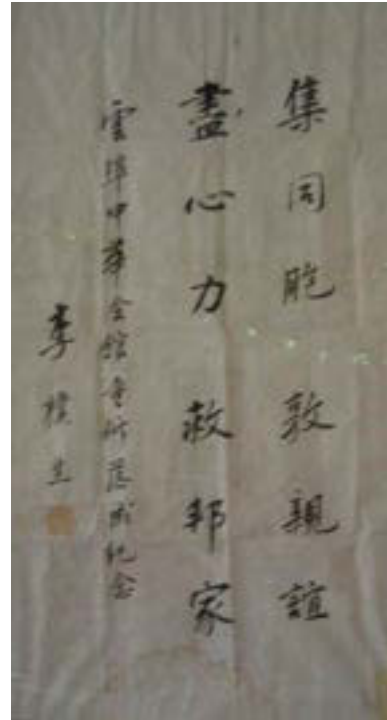 集同胞敦親誼
盡心力救邦家
雲埠中華會館會所落成紀念
李樸生